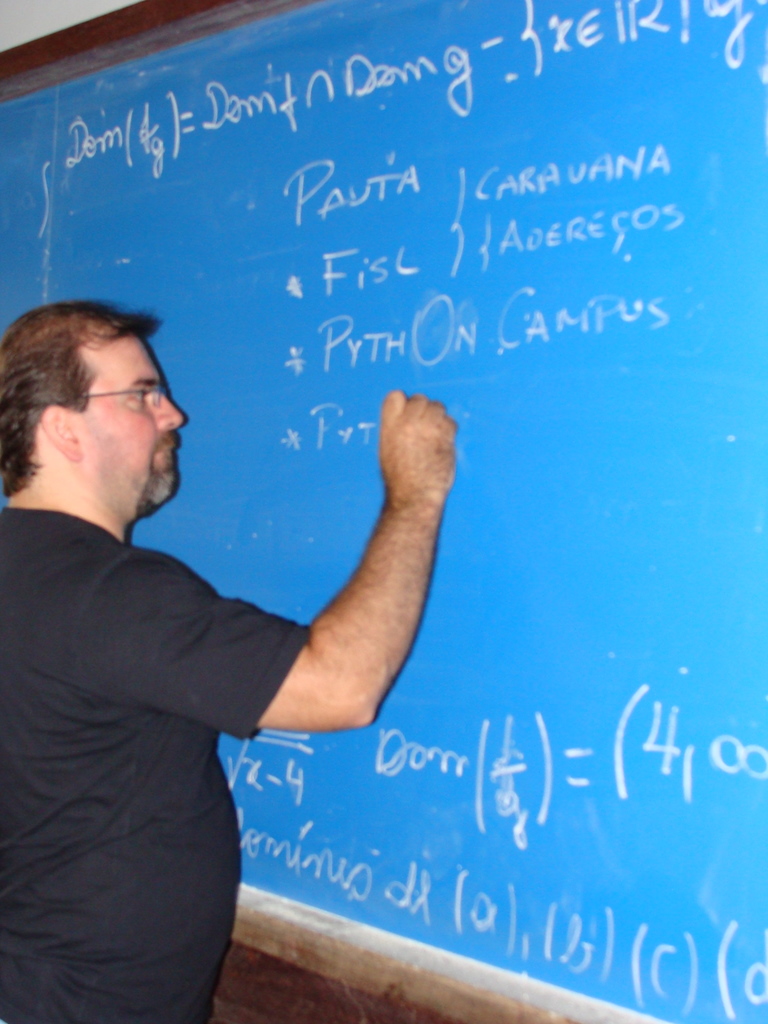 Dom(f/g) = Dom f ∩ Dom g - {x ∈ IR / g
PAUTA } CARAVANA
* FISL } { ADEREÇOS
* PYTHON CAMPUS
* PYT
√x-4 Dom(f/g) = (4, ∞
domínios de (a), (b) (c) (d